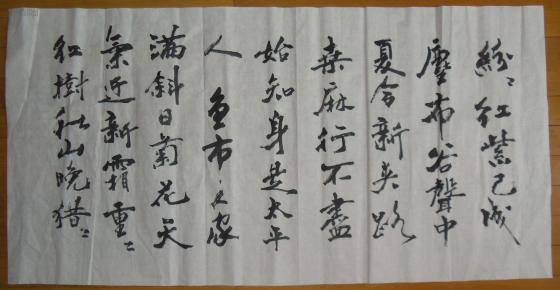 紛〻紅紫已成
塵布谷聲中
夏令新夾路
桑麻行不盡
始知身是太平
人 魚市人家
滿斜日菊花天
氣近新霜重〻
紅樹秋山晚獵〻